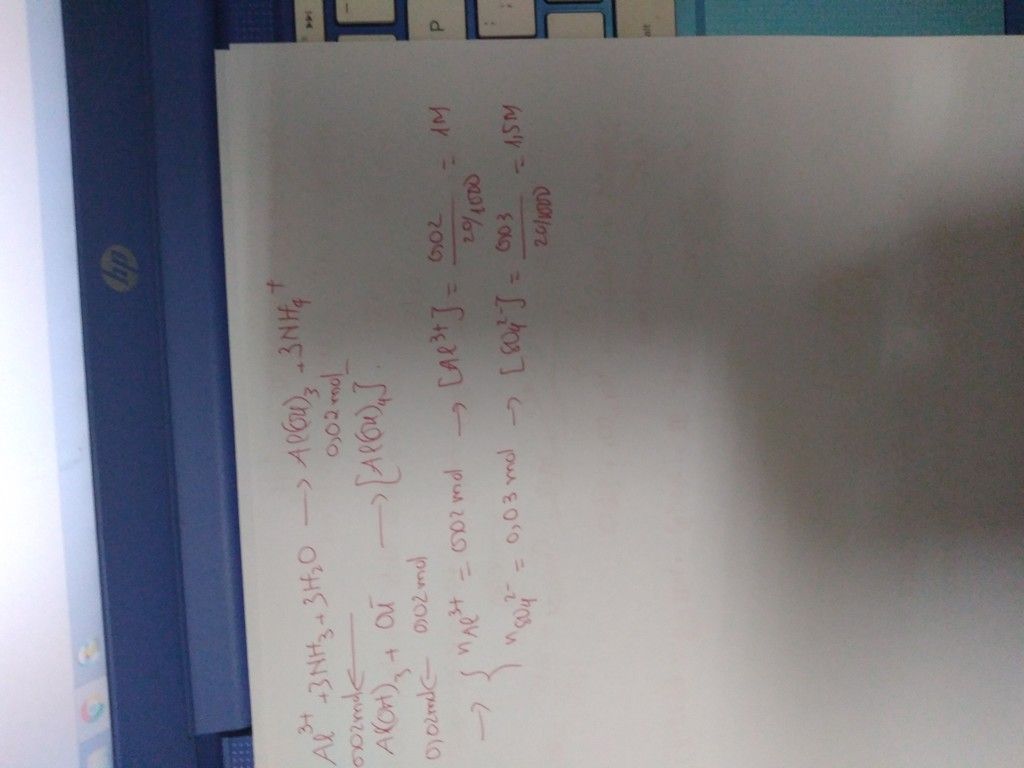 Al³⁺ + 3NH₃ + 3H₂O → Al(OH)₃ + 3NH₄⁺
0,02mol ← 0,02mol
Al(OH)₃ + OH⁻ → [Al(OH)₄]⁻.
0,02mol ← 0,02mol
→ { n Al³⁺ = 0,02mol → [Al³⁺] = 0,02 / 20/1000 = 1M
n SO₄²⁻ = 0,03mol → [SO₄²⁻] = 0,03 / 20/1000 = 1,5M
hp
P
alt